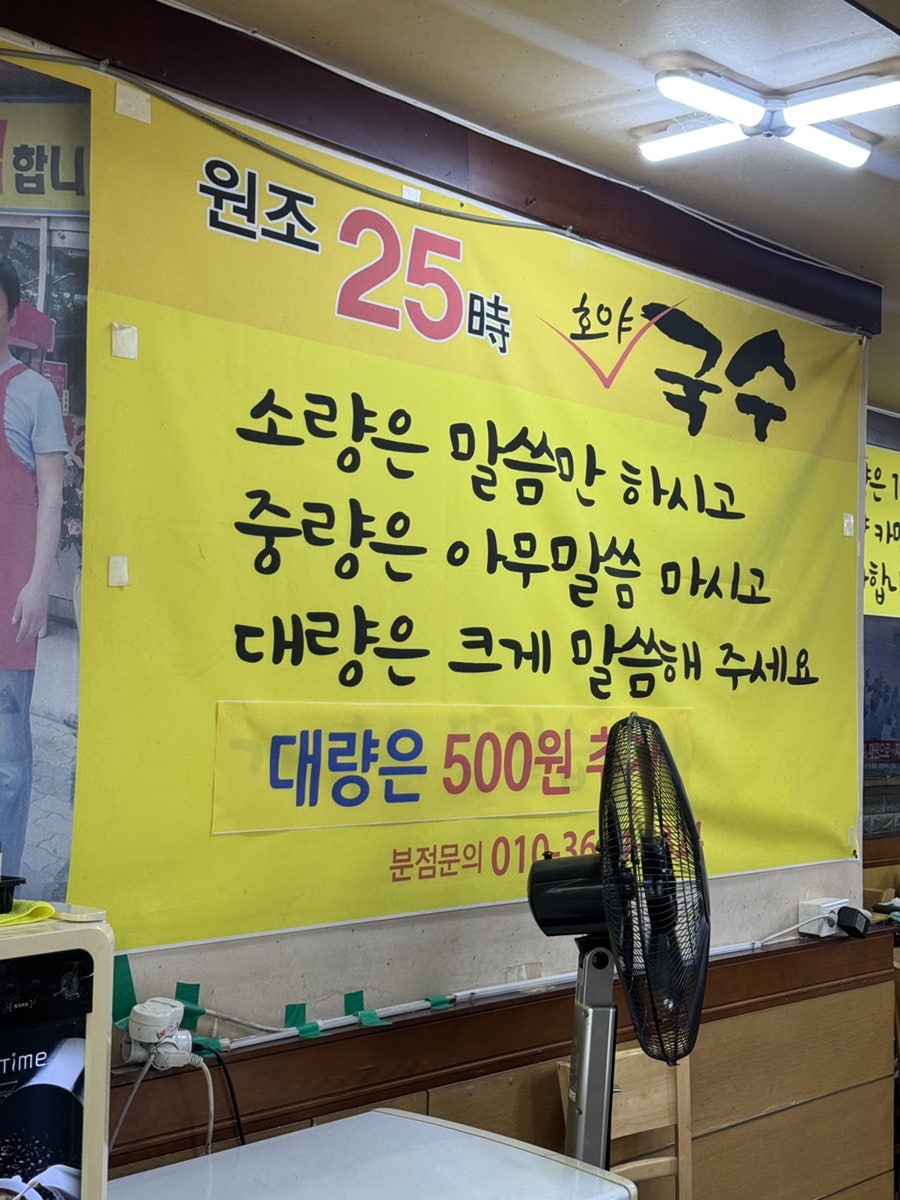 합니
원조 25時 호야 국수
소량은 말씀만 하시고
중량은 아무말씀 마시고
대량은 크게 말씀해 주세요
대량은 500원
분점문의 010-36
Time